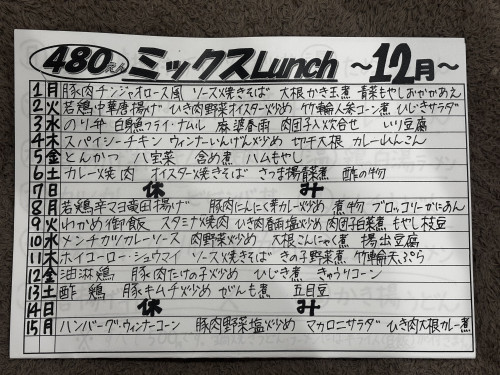 480えん ミックスLunch ~12月~
1 月 豚肉チンジャオロース風 ソース焼きそば 大根かき玉煮 青菜もやしおかかあえ
2 火 若鶏中華唐揚げ ひき肉野菜オイスター炒め 竹輪人参コーン煮 ひじきサラダ
3 水 のり弁 白身魚フライ・ナムル 麻婆春雨 肉団子入炊合せ いり豆腐
4 木 スパイシーチキン ウィンナーいんげん炒め 切干大根 カレーれんこん
5 金 とんかつ 八宝菜 含め煮 ハムもやし
6 土 カレー焼肉 オイスター焼きそば さつま揚青菜煮 酢の物
7 日 休み
8 月 若鶏辛マヨ竜田揚げ 豚肉にんにく芽カレー炒め 煮物 ブロッコリーかにあん
9 火 わかめ御飯 スタミナ焼肉 ひき肉春雨塩炒め 肉団子白菜煮 もやし枝豆
10 水 メンチカツカレーソース 肉野菜炒め 大根こんにゃく煮 揚出豆腐
11 木 ホイコーロー・シュウマイ ソース焼きそば きの子野菜煮 竹輪天ぷら
12 金 油淋鶏 豚肉たけの子炒め ひじき煮 きゅうりコーン
13 土 酢鶏 豚キムチ炒め がんも煮 五目豆
14 日 休み
15 月 ハンバーグ・ウィンナーコーン 豚肉野菜塩炒め マカロニサラダ ひき肉大根カレー煮